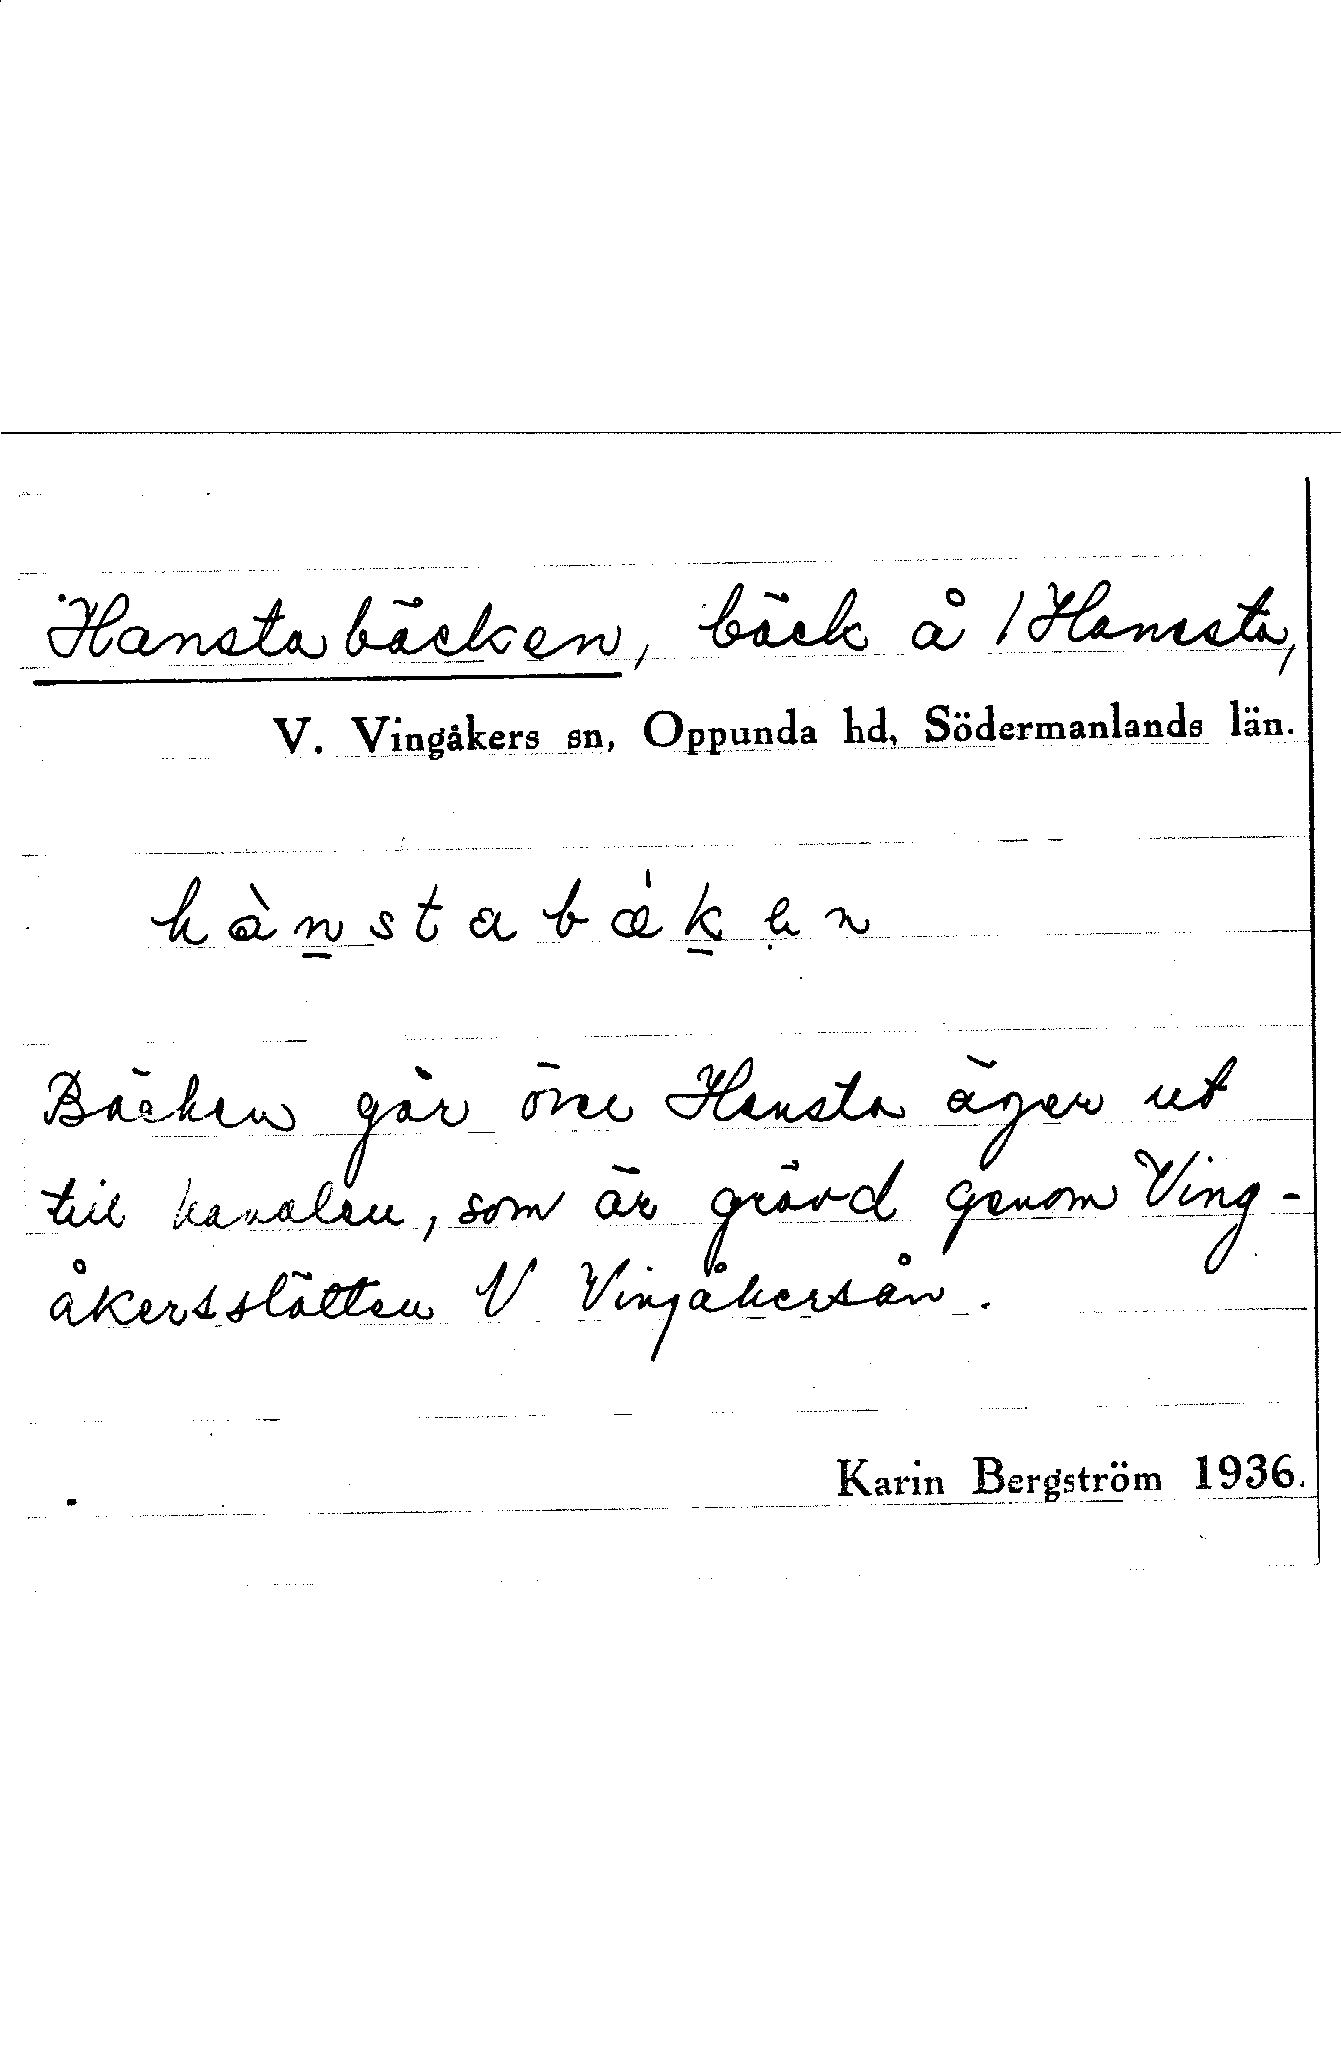 Hanstabäcken, bäck å 1 Hansta,
V. Vingåkers sn, Oppunda hd, Södermanlands län.
hànstabǽkẹn
Bäcken går över Hansta äger ut
till kanalen, som är grävd genom Ving-
åkersslätten V Vingåkersån.
Karin Bergström 1936.